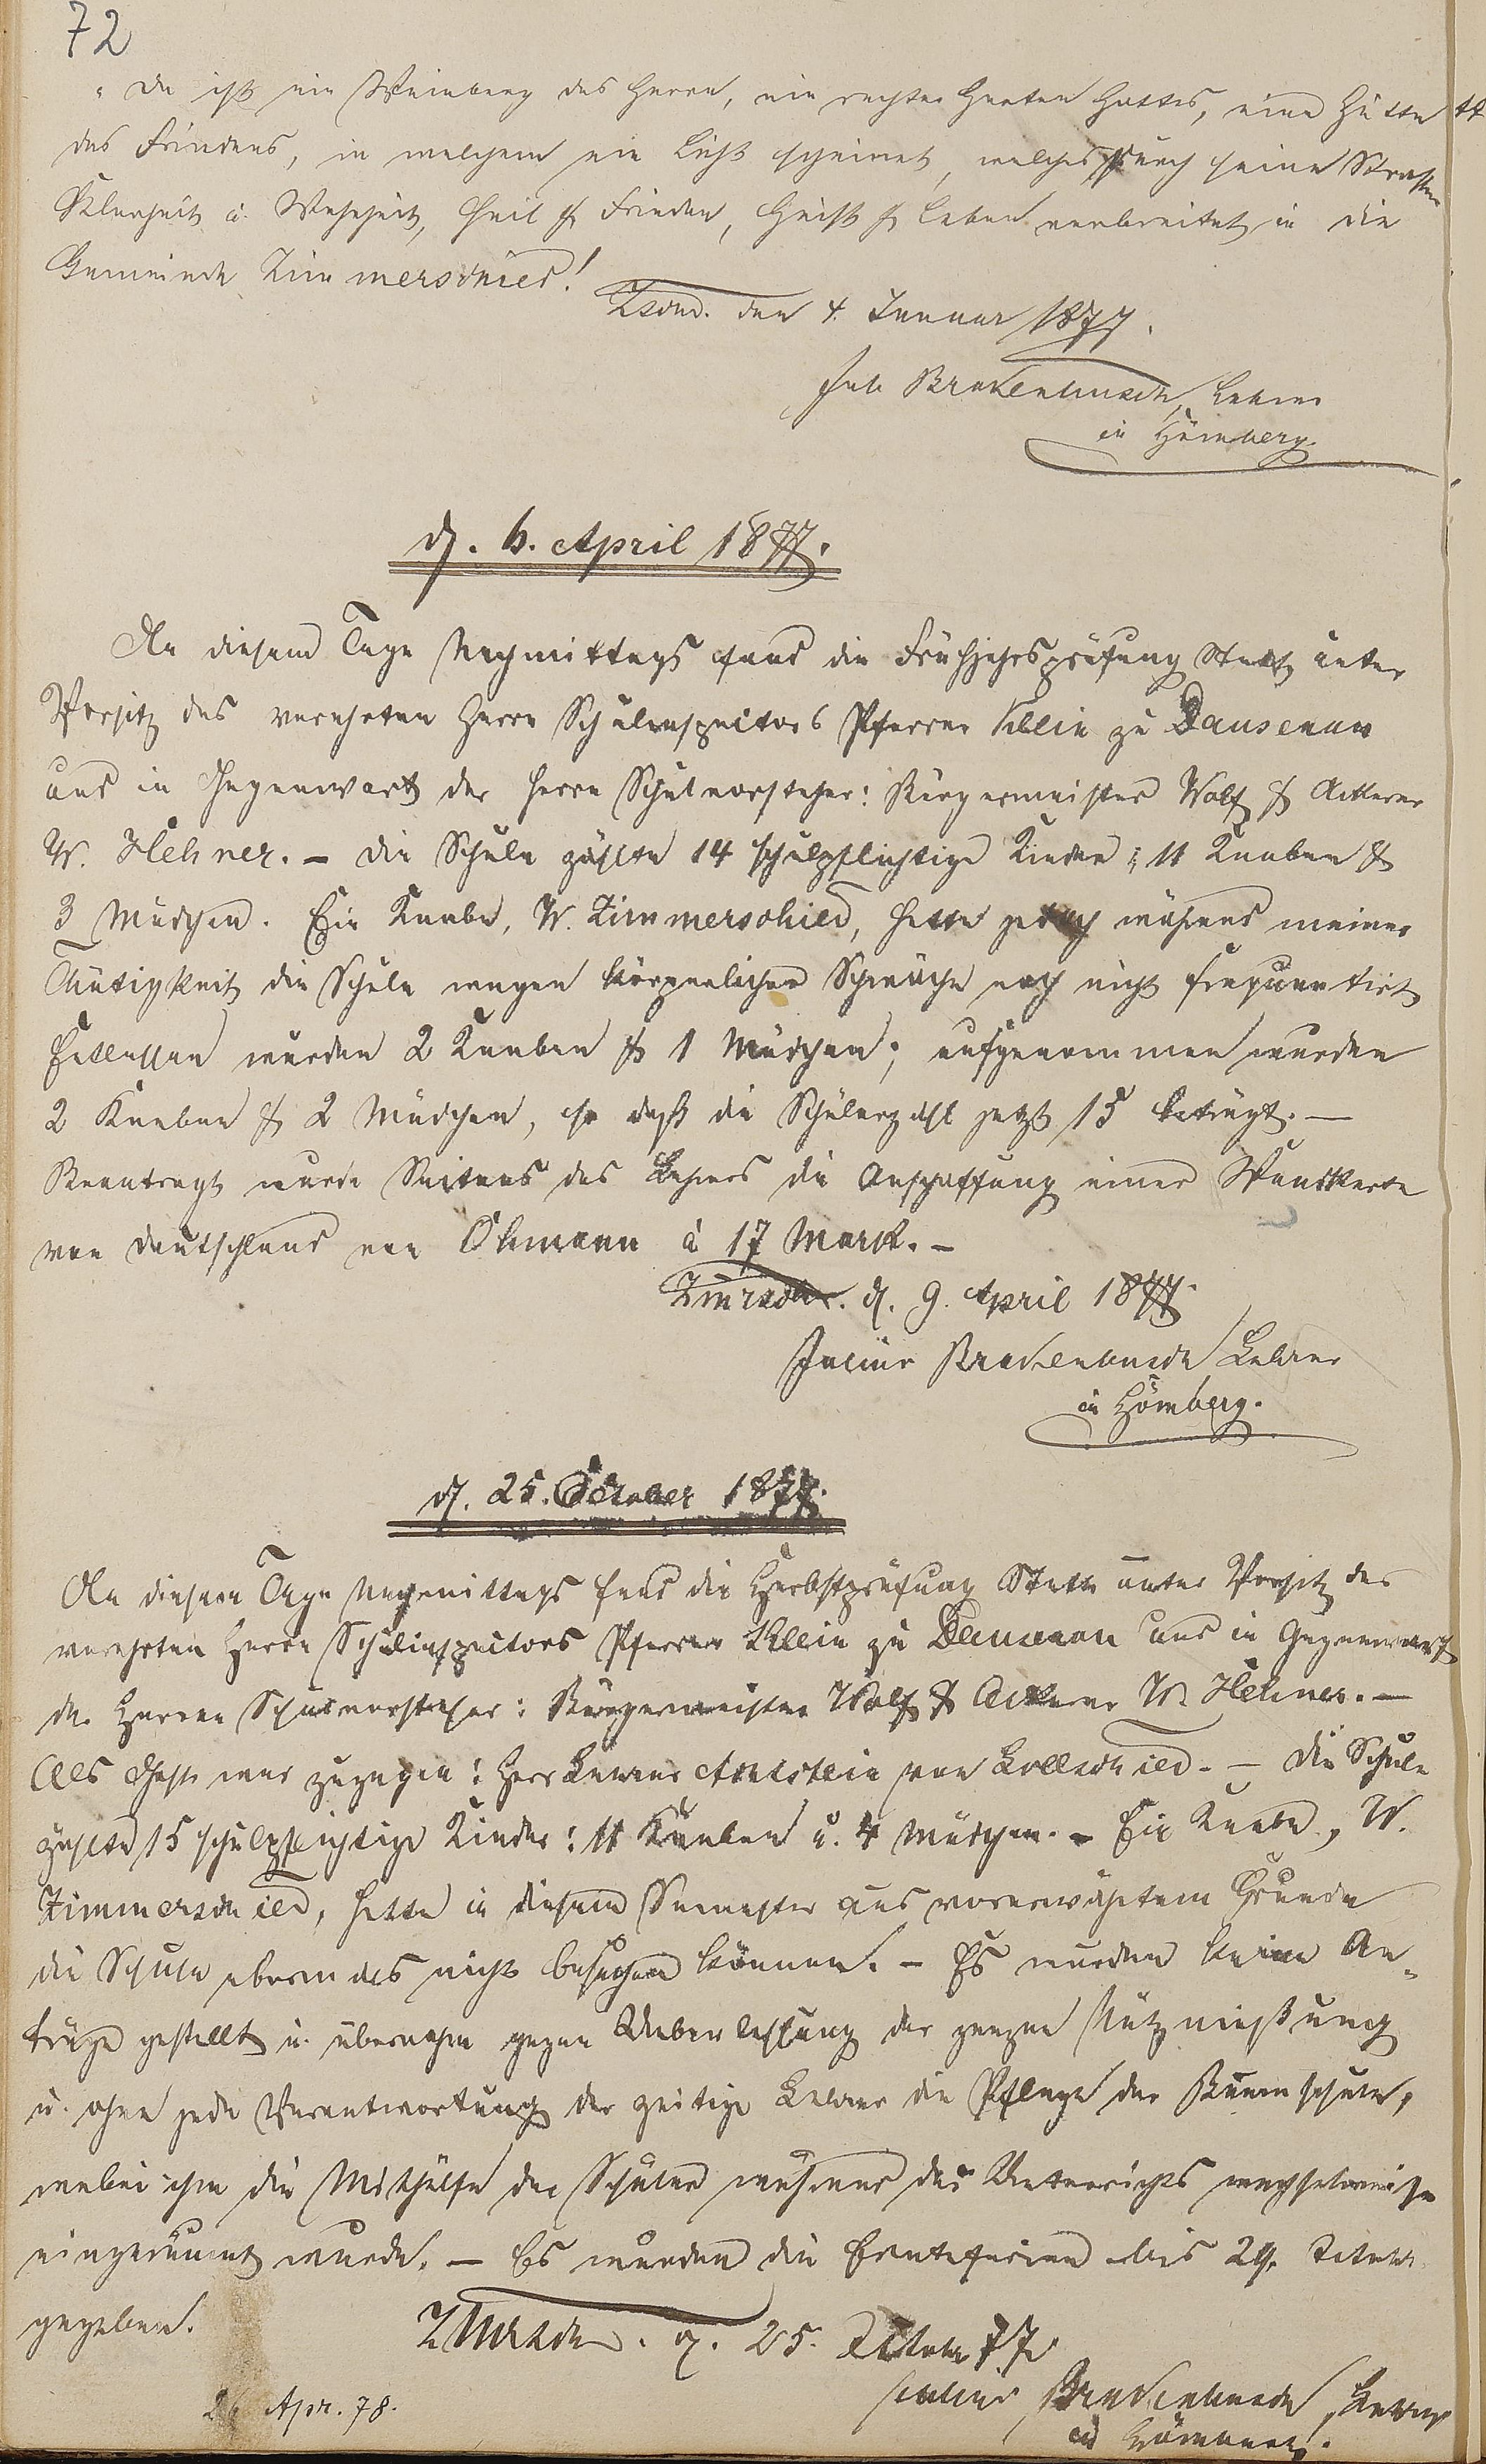 72
"Da ist ein Weinberg des Herrn, ein rechter Garten Gottes, eine Hütte
des Friedens, in welchem ein Licht scheinet, welches durch seine Strahlen
Klarheit u. Wahrheit, Heil & Frieden, Geist & Leben verbreitet in die
Gemeinde Zimmerschied!
Zschd. den 4. Januar 1877.
Jul. Brakenbusch, Lehrer
in Hömberg.
d. 6. April 1877.
An diesem Tage Nachmittags fand die Frühjahrsprüfung Statt unter
Vorsitz des verehrten Herrn Schulinspectors Pfarrer Klein zu Dausenau
und in Gegenwart der Herrn Schulvorsteher: Bürgermeister Wolf & Ackerer
W. Hehner. – Die Schule zählte 14 schulpflichtige Kinder; 11 Knaben &
3 Mädchen. Ein Knabe, W. Zimmerschied, hatte jedoch während meiner
Thätigkeit die Schule wegen körperlicher Schwäche noch nicht frequentirt
Entlassen wurden 2 Knaben & 1 Mädchen; aufgenommen wurden
2 Knaben & 2 Mädchen, so daß die Schülerzahl jetzt 15 beträgt. —
Beantragt wurde Seitens des Lehrers die Anschaffung einer Wandkarte
von Deutschland von Ohmann à 17 Mark. –
Zmrschd. d. 9. April 1877.
Julius Brakenbusch Lehrer
in Hömberg.
d. 25. October 1877.
An diesem Tage Nachmittags fand die Herbstprüfung Statt unter Vorsitz des
verehrten Herrn Schulinspectors Pfarrer Klein zu Dausenau und in Gegenwart
der Herren Schulvorsteher: Bürgermeister Wolf & Ackerer W. Hehner. —
Als Gast war zugegen: Herr Lehrer Arnstein von Lollschied. – Die Schule
zählte 15 schulpflichtige Kinder: 11 Knaben u. 4 Mädchen. – Ein Knabe, W.
Zimmerschied, hatte in diesem Semester aus vorerwähntem Grunde
die Schule abermals nicht besuchen können. – Es wurden keine An-
träge gestellt u. übernahm gegen Ueberlassung der ganzen Nutznießung
u. ohne jede Verantwortung der zeitige Lehrer die Pflege der Baumschule,
wobei ihm die Mithülfe der Schüler während des Unterrichts wechselweise
eingeräumt wurde. – Es wurden die Herbstferien bis 29. October
gegeben.
Zmrschd. d. 25. October 77.
Julius Brakenbusch, Lehrer
in Hömberg.
26 Apr. 78.